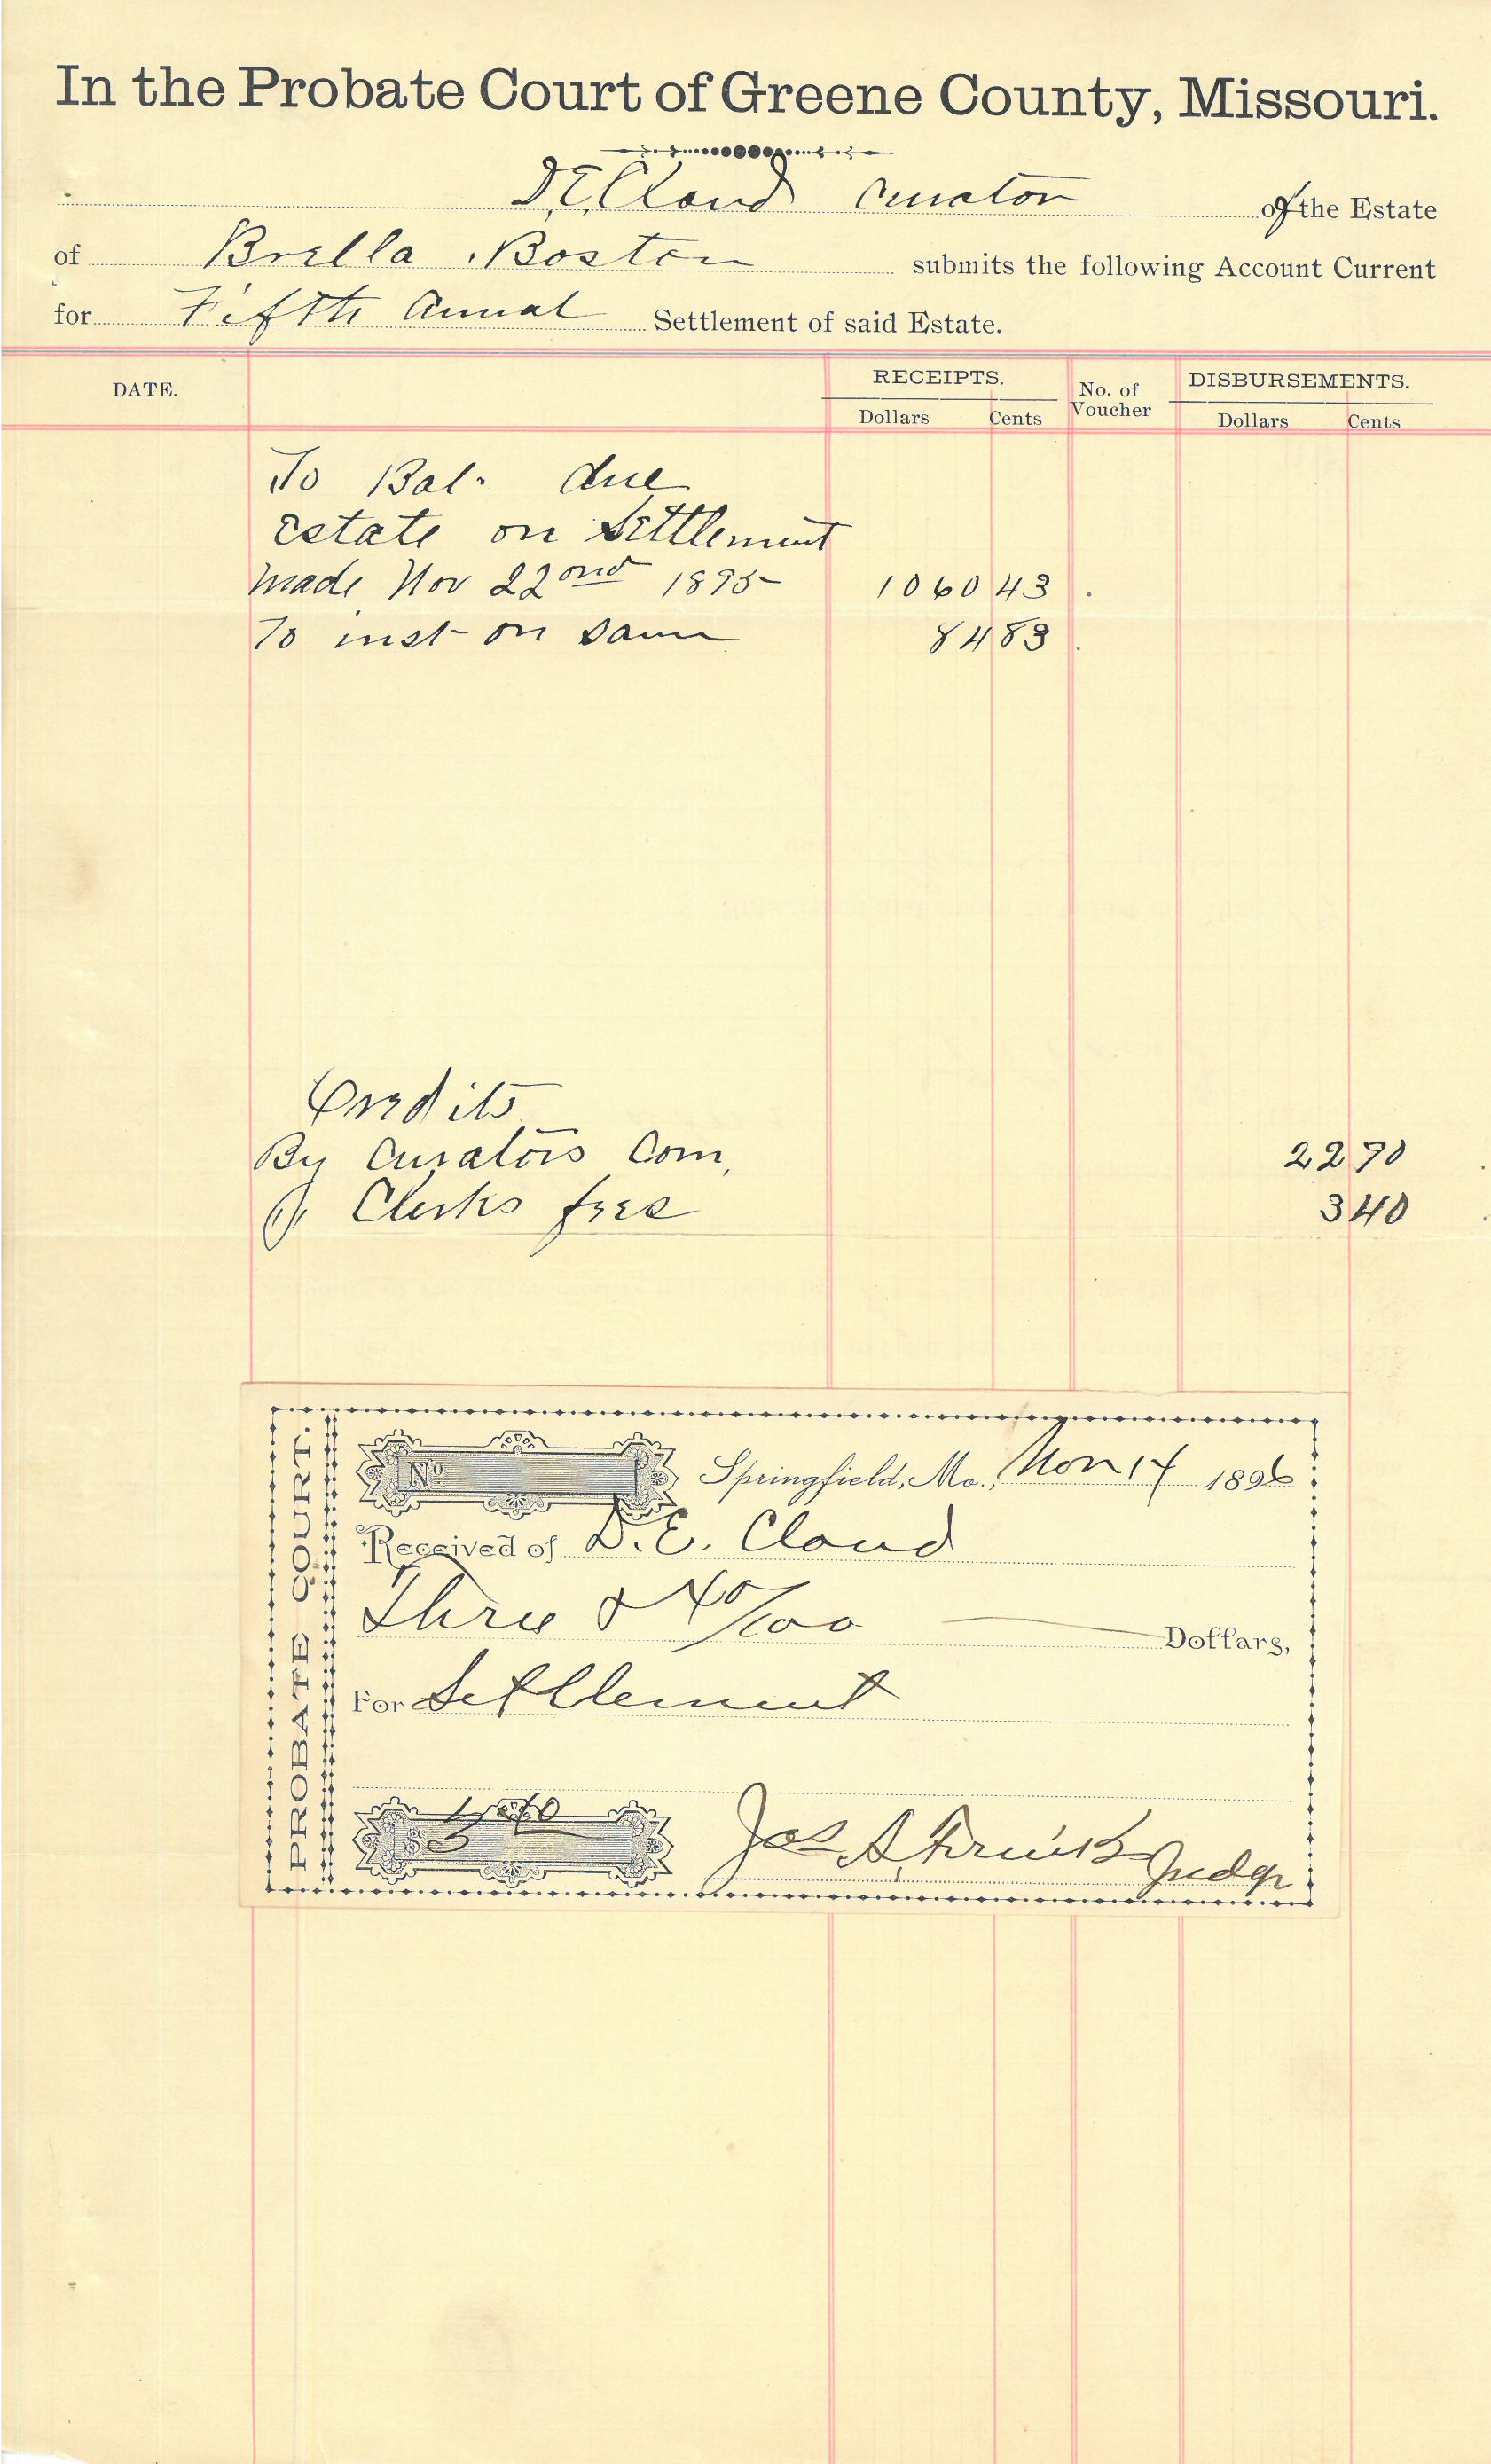 In the Probate Court of Greene County, Missouri.
D.E. Cloud Curator of the Estate
of Brella Boston submits the following Account Current
for Fifth Annual Settlement of said Estate.
DATE. RECEIPTS. No. of Voucher DISBURSEMENTS.
Dollars Cents Dollars Cents
To Bal. due
Estate on Settlement
made Nov 22nd 1895 1060 43
To inst on same 84 83
Credits
By Curators Com, 22 90
Clerks fees 3 40
PROBATE COURT.
No Springfield, Mo., Nov 14 1896
Received of D. E. Cloud
Three & 40/100 Dollars,
For Settlement
$3 40
Jas A Judge